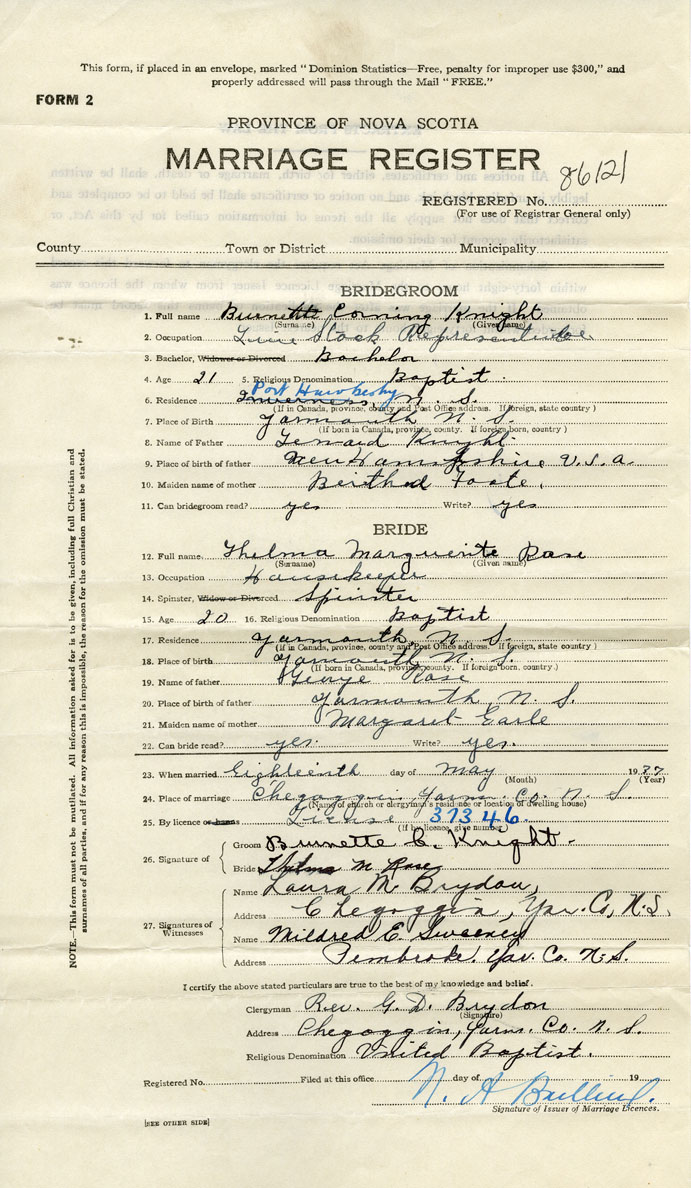 This form, if placed in an envelope, marked "Dominion Statistics—Free, penalty for improper use $300," and
properly addressed will pass through the Mail "FREE."
FORM 2
PROVINCE OF NOVA SCOTIA
MARRIAGE REGISTER
86121
REGISTERED No.
(For use of Registrar General only)
County Town or District Municipality
BRIDEGROOM
1. Full name Burnette Corning Knight
(Surname) (Given name)
2. Occupation Live Stock Representative
3. Bachelor, Widower or Divorced Bachelor
4. Age 21 5. Religious Denomination Baptist
Port Hawkesbury
6. Residence Inverness, N. S.
(If in Canada, province, county and Post Office address. If foreign, state country)
7. Place of Birth Yarmouth N. S.
(If born in Canada, province, county. If foreign born, country)
8. Name of Father Knight
9. Place of birth of father New Hampshire U.S.a.
10. Maiden name of mother Foote.
11. Can bridegroom read? yes Write? yes
BRIDE
12. Full name Thelma Marguerite Rose
(Surname) (Given name)
13. Occupation Housekeeper
14. Spinster, Widow or Divorced Spinster
15. Age 20 16. Religious Denomination Baptist
17. Residence Yarmouth, N. S.
(If in Canada, province, county and Post Office address. If foreign, state country)
18. Place of birth Yarmouth N. S.
(If born in Canada, province, county. If foreign born, country.)
19. Name of father George Rose
20. Place of birth of father Yarmouth, N. S.
21. Maiden name of mother Margaret Earle
22. Can bride read? yes. Write? yes.
23. When married Eighteenth day of May 1937
(Month) (Year)
24. Place of marriage Chegoggin Yarm. Co. N. S.
(Name of church or clergyman's residence or location of dwelling house)
25. By licence or banns License 37346.
(If by licence, give number)
26. Signature of Groom Burnette C. Knight.
Bride Thelma M Rose
27. Signatures of Witnesses
Name Laura M. Brydon,
Address Chegoggin, Yar. Co, N.S.
Name Mildred E. Sweeney
Address Pembroke. Yar. Co. N.S.
I certify the above stated particulars are true to the best of my knowledge and belief.
Clergyman Rev. G. D. Brydon
(Signature)
Address Chegoggin, Yarm. Co. N. S.
Religious Denomination United Baptist.
Registered No. Filed at this office day of 19
N. A
Signature of Issuer of Marriage Licences.
[SEE OTHER SIDE]
NOTE.—This form must not be mutilated. All information asked for is to be given, including full Christian and
surnames of all parties, and if for any reason this is impossible, the reason for the omission must be stated.